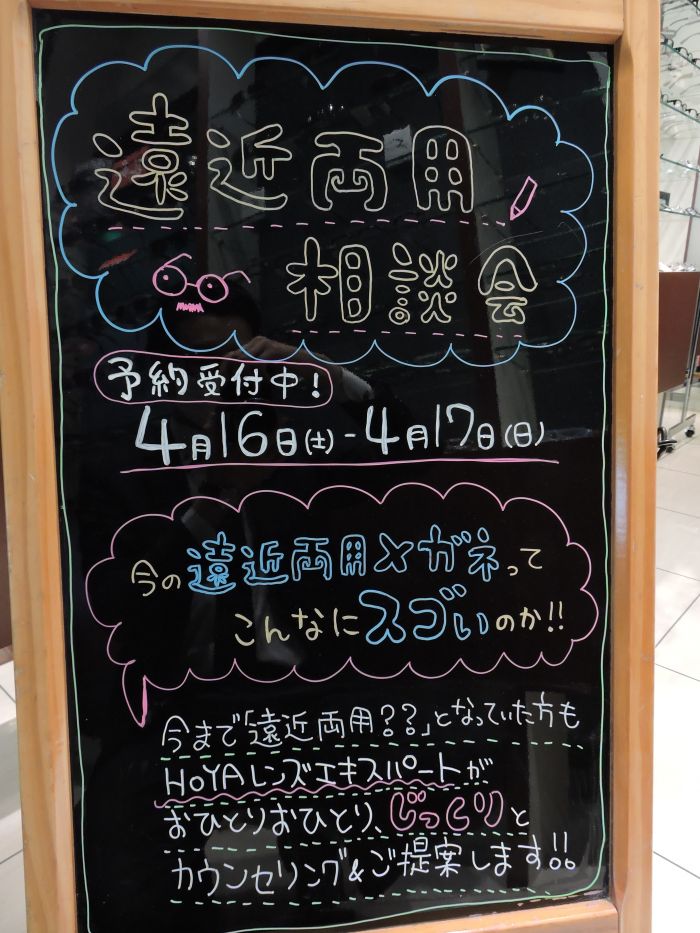 遠近両用
相談会
予約受付中!
4月16日(土)-4月17日(日)
今の遠近両用メガネって
こんなにスゴいのか!!
今まで「遠近両用??」となっていた方も
HOYAレンズエキスパートが
おひとりおひとり、じっくりと
カウンセリング&ご提案します!!